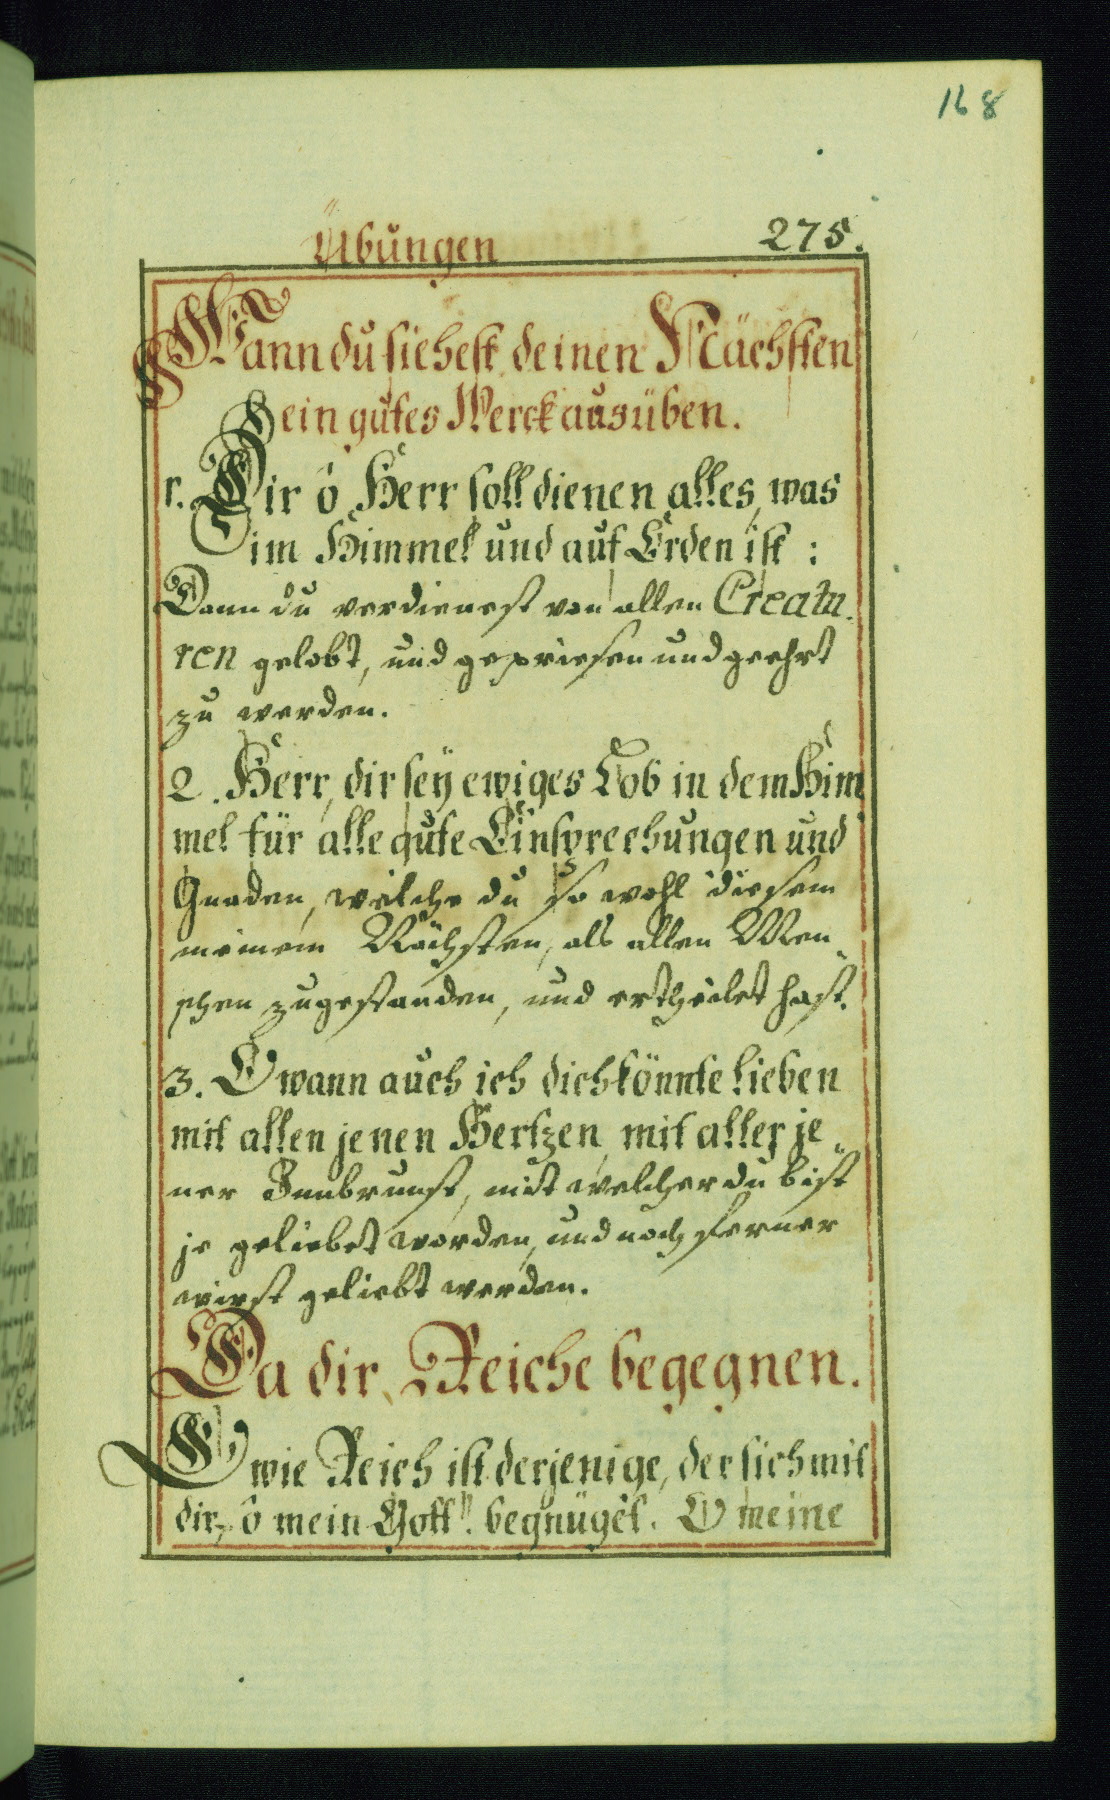 168
Übungen 275.
Wann du siehest deinen Nächsten
ein gutes Werck ausüben.
1. Dir ô Herr soll dienen alles, was
im Himmel und auf Erden ist:
Dann du verdienest von allen Creatu-
ren gelobt, und gepriesen und geehrt
zu werden.
2. Herr, dir seÿ ewiges Lob in dem Him
mel für alle gute Einsprechungen und
Gnaden, welche du so wohl diesem
meinem Nächsten, als allen Men-
schen zugestanden, und ertheilet hast.
3. O wann auch ich dich könnte lieben
mit allen jenen Hertzen, mit aller je-
ner Innbrunst, mit welcher du bist
je geliebet worden, und noch ferner
wirst geliebt werden.
Da dir Reiche begegnen.
O wie Reich ist derjenige, der sich mit
dir, ô mein Gott! begnüget. O meine